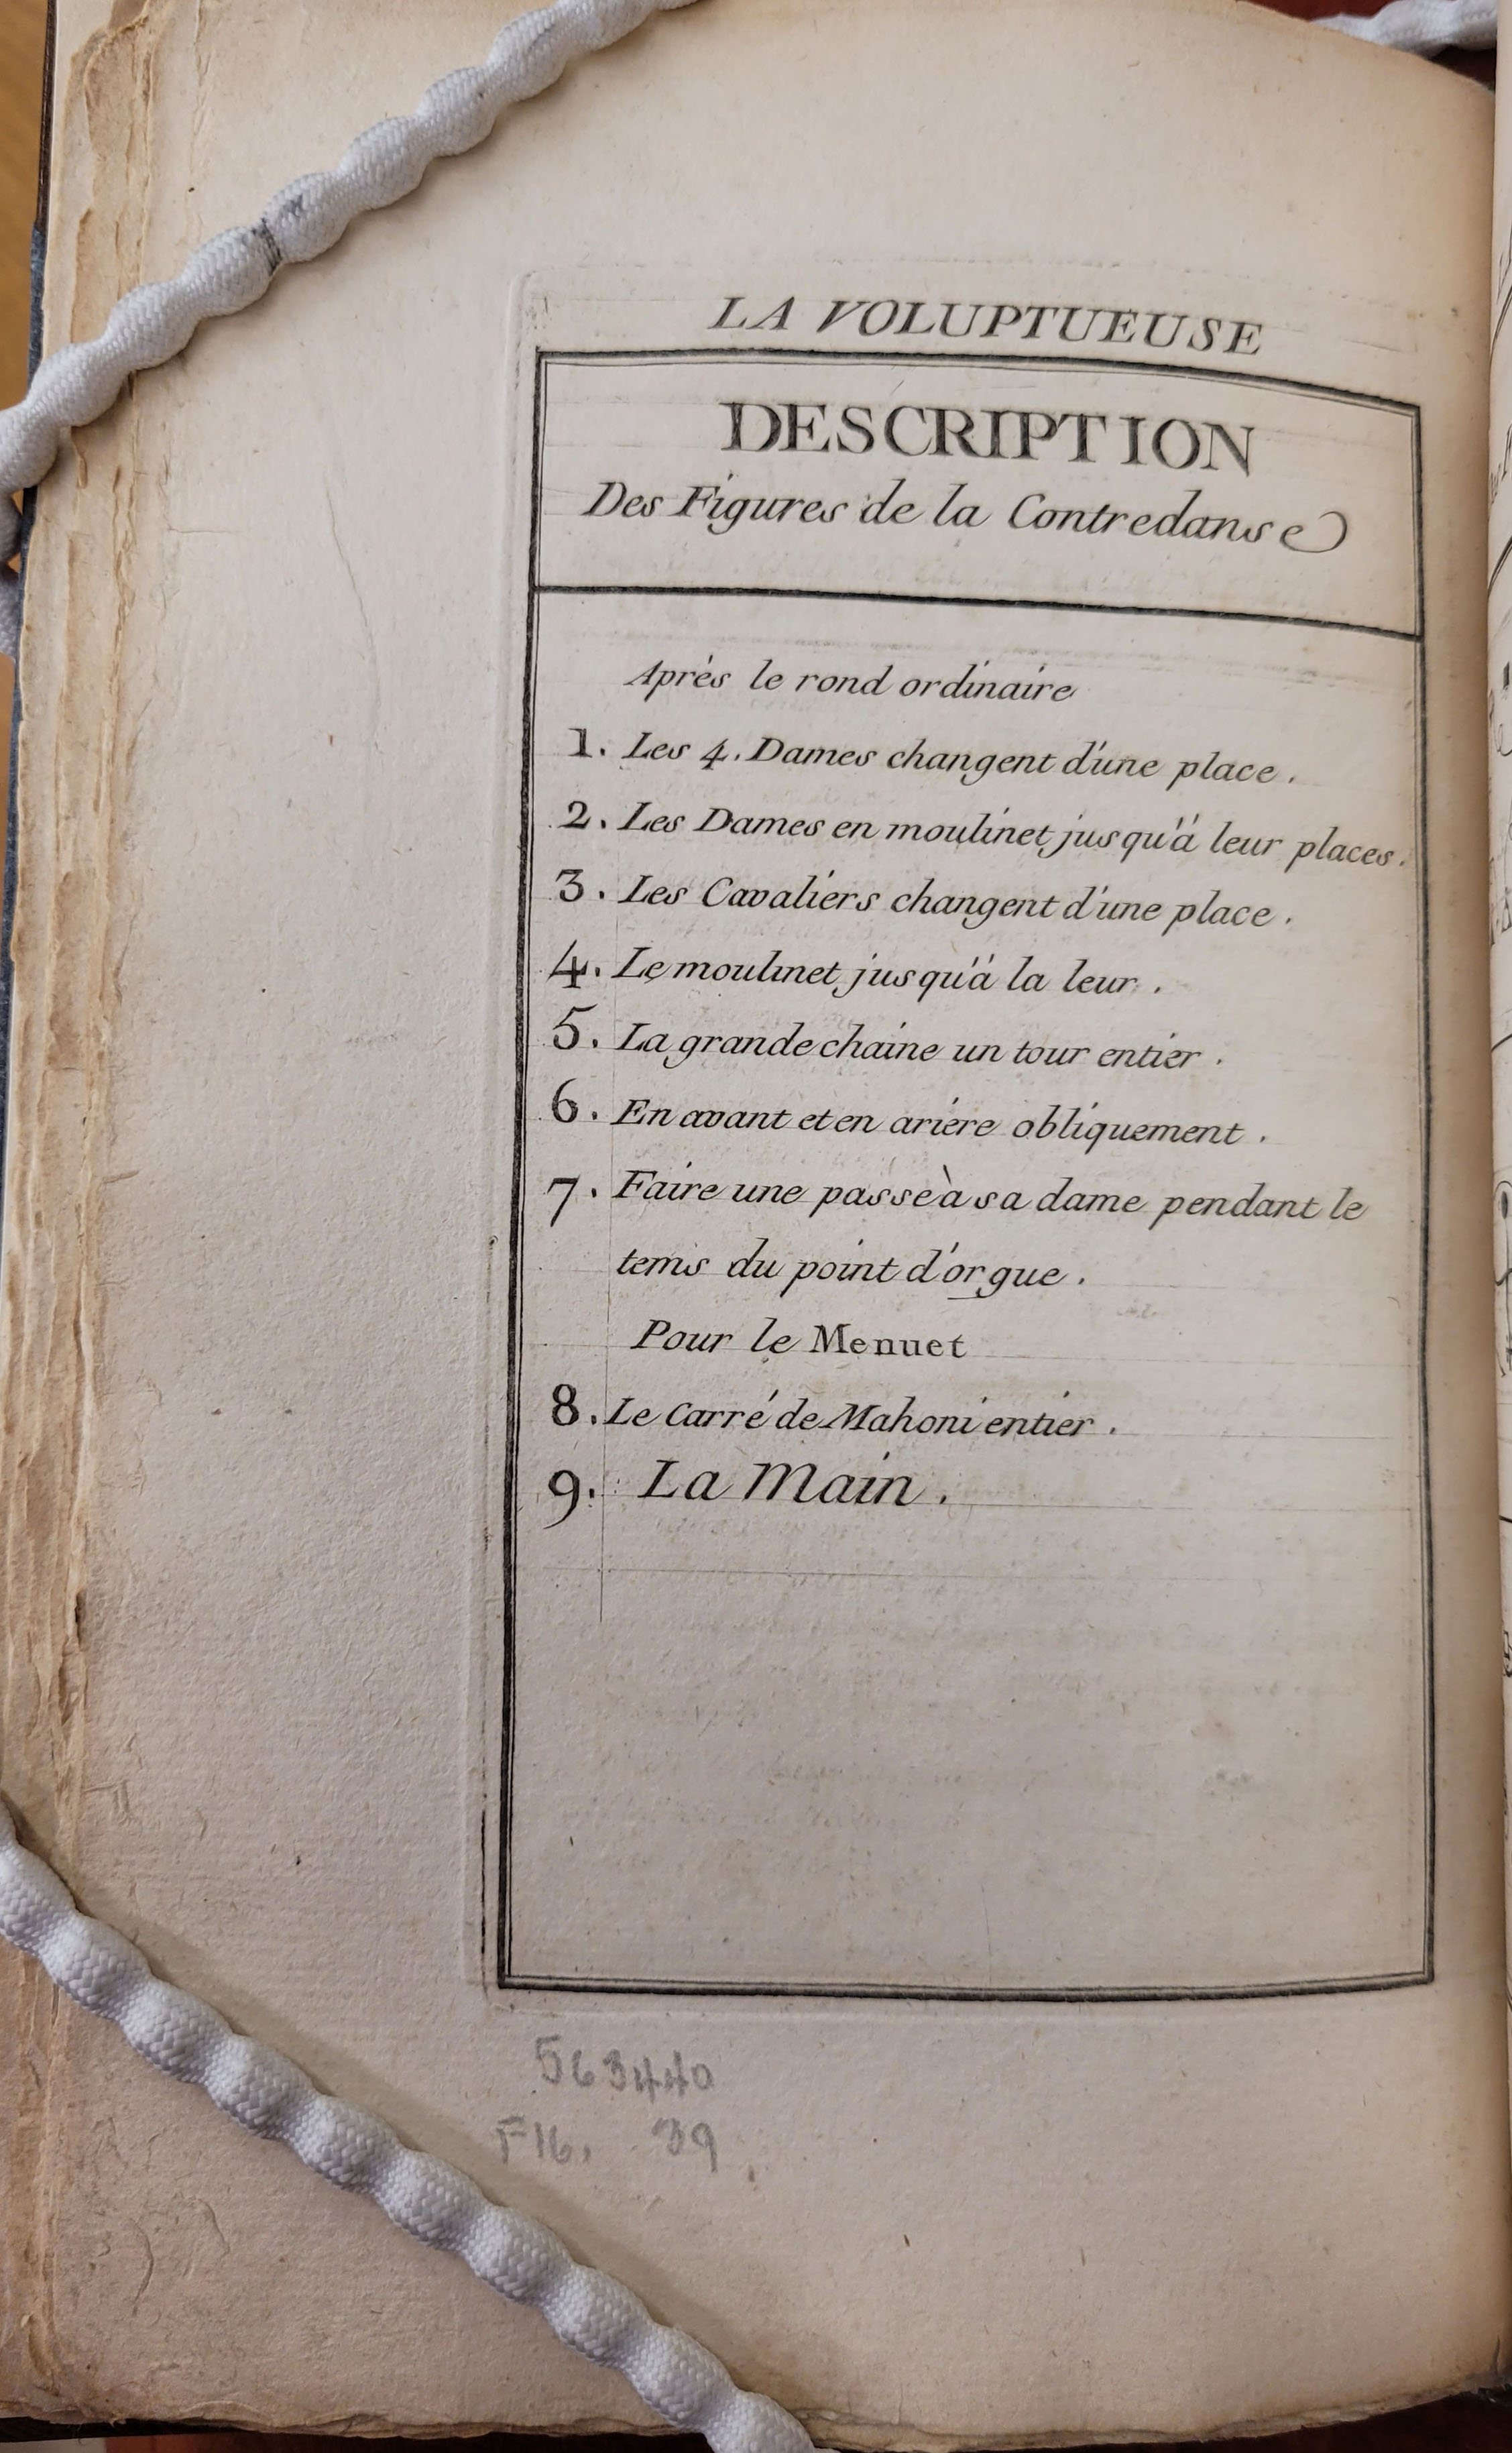 LA VOLUPTUEUSE
DESCRIPTION
Des Figures de la Contredanse
Après le rond ordinaire
1. Les 4. Dames changent d'une place.
2. Les Dames en moulinet jusqu'à leur places.
3. Les Cavaliers changent d'une place.
4. Le moulinet jusqu'à la leur.
5. La grande chaine un tour entier.
6. En avant et en ariere obliquement.
7. Faire une passe à sa dame pendant le
tems du point d'orgue.
Pour le Menuet
8. Le Carré de Mahoni entier.
9. La Main.
563440
F16. 39